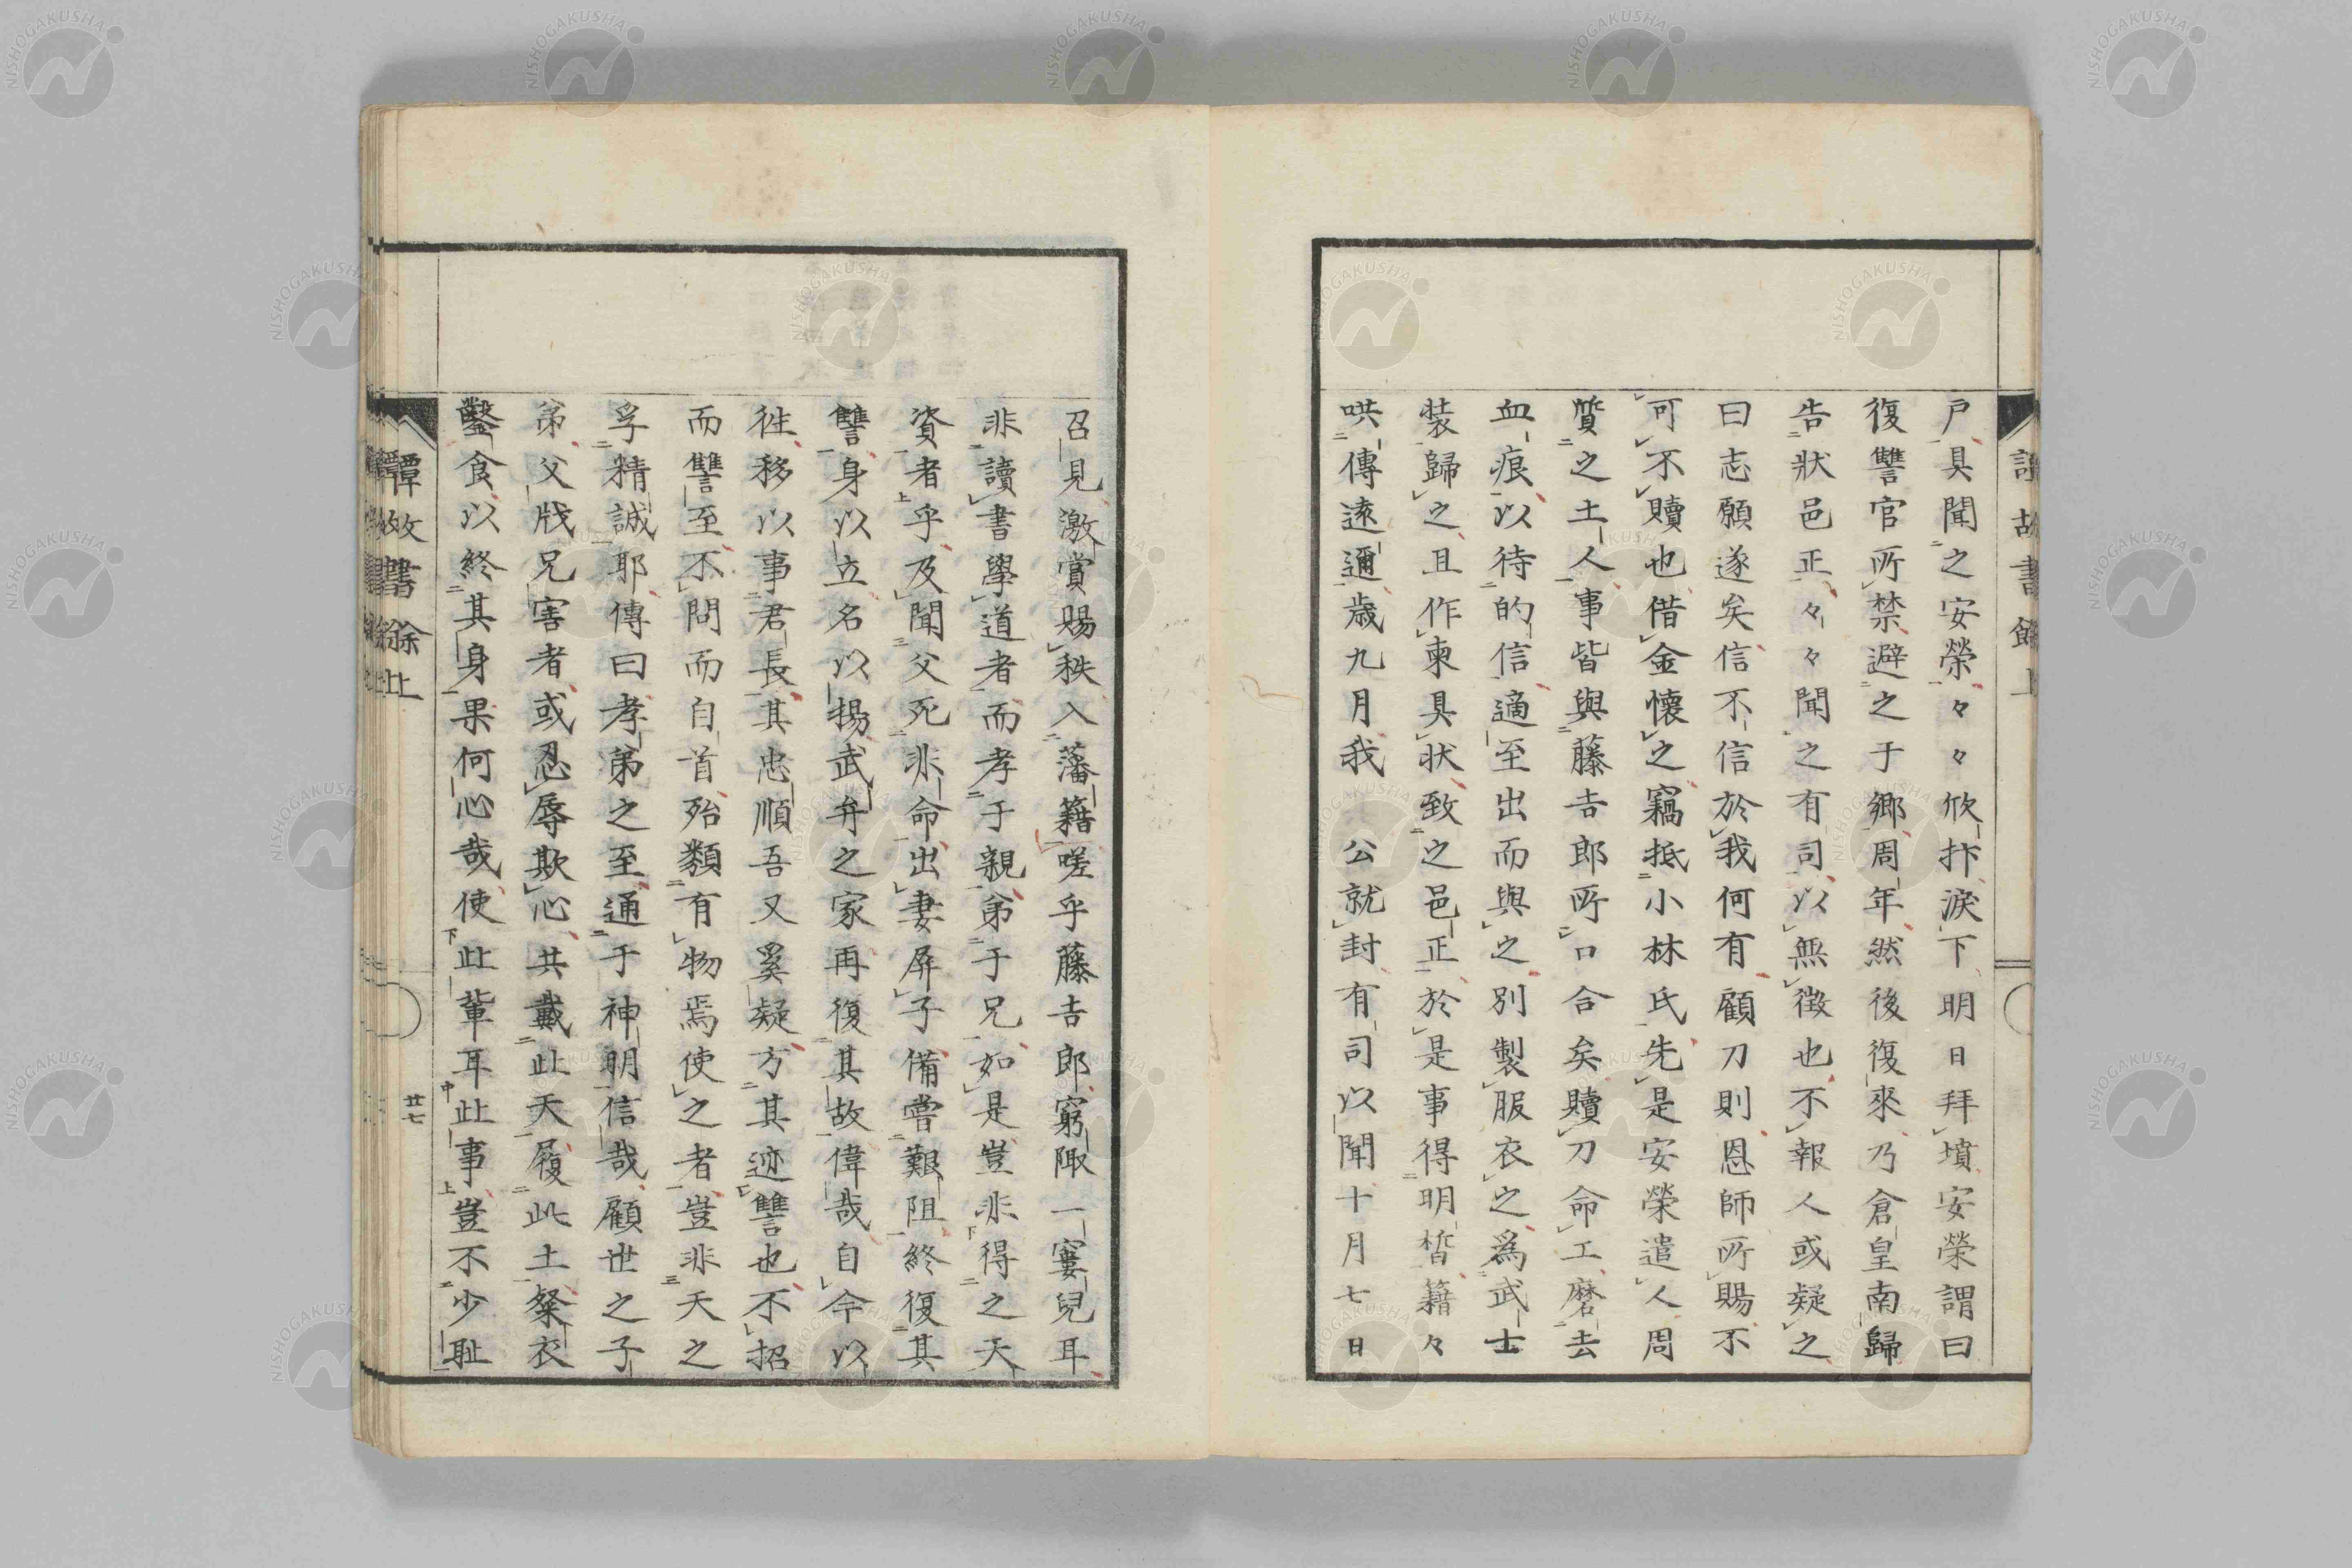 戸具聞之安榮々々欣抃淚下明日拜墳安榮謂曰
復讐官所禁避之于鄉周年然後復來乃倉皇南歸
告狀邑正々々聞之有司以無徵也不報人或疑之
曰志願遂矣信不信於我何有顧刀則恩師所賜不
可不贖也借金懷之竊抵小林氏先是安榮遣人周
質之土人事皆與藤吉郎所口合矣贖刀命工磨去
血痕以待的信適至出而與之別製服衣之爲武士
裝歸之且作柬具狀致之邑正於是事得明晳籍々
哄傳遠邇歲九月我 公就封有司以聞十月七日
召見激賞賜秩入藩籍嗟乎藤吉郎窮陬一窶兒耳
非讀書學道者而孝于親弟于兄如是豈非得之天
資者乎及聞父死非命出妻屏子備嘗艱阻終復其
讐身以立名以揚武弁之家再復其故偉哉自今以
徃移以事君長其忠順吾又奚疑方其迹讐也不招
而讐至不問而自首殆類有物焉使之者豈非天之
孚精誠耶傳曰孝弟之至通于神明信哉顧世之子
弟父戕兄害者或忍辱欺心共戴此天履此土粲衣
鑿食以終其身果何心哉使此輩耳此事豈不少恥
譚故書餘上
廿七